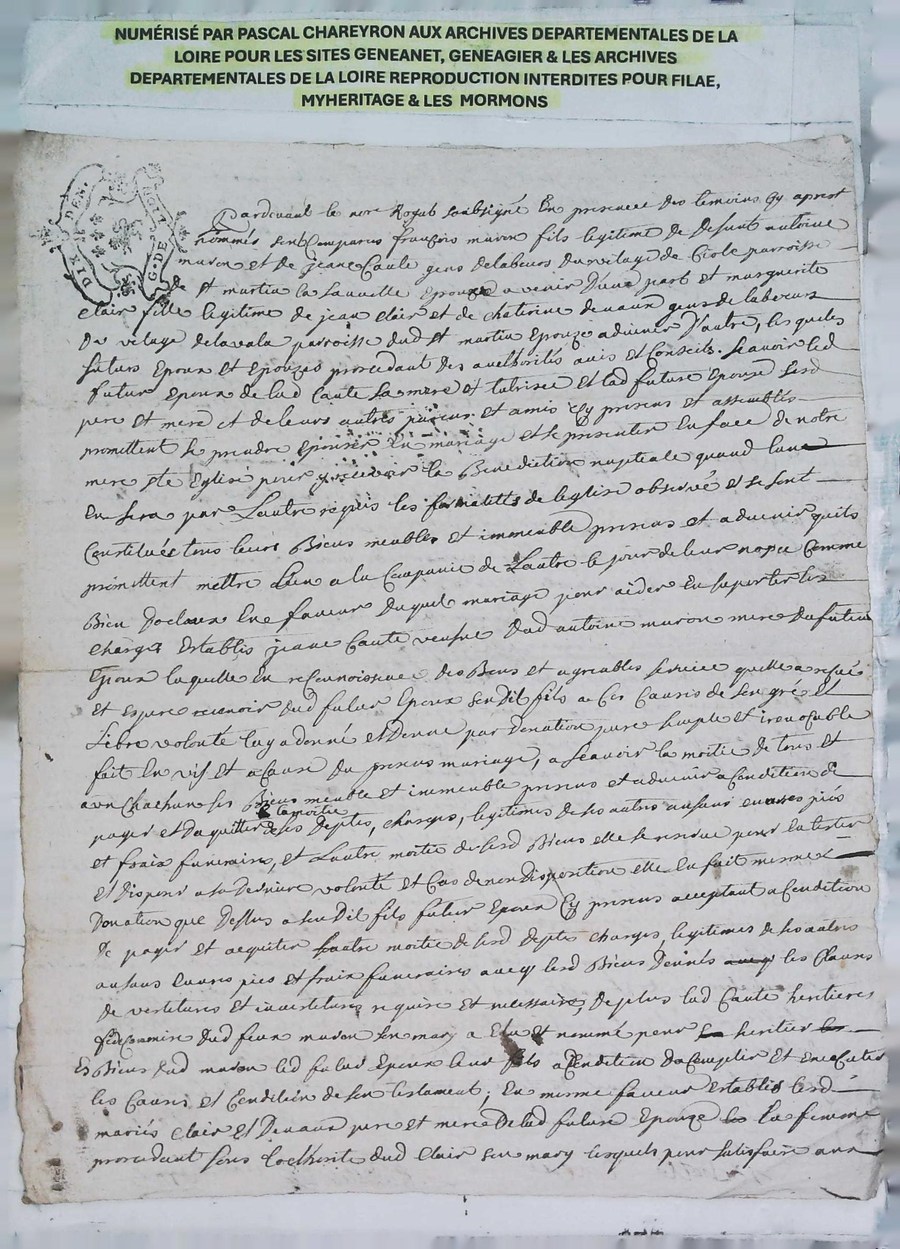 NUMÉRISÉ PAR PASCAL CHAREYRON AUX ARCHIVES DEPARTEMENTALES DE LA
LOIRE POUR LES SITES GENEANET, GENEAGIER & LES ARCHIVES
DEPARTEMENTALES DE LA LOIRE REPRODUCTION INTERDITES POUR FILAE,
MYHERITAGE & LES MORMONS
DIX DEN.
G. DE
Pardevant le nore Royal soubsigné En presence des temoins cy aprest
nommés sont Comparus françois muron fils legitime de defunt antoine
muron et de jeane Caute gens delabeurs du vilage de parroisse
de st martin la sauveté Epoux a venir D'une part et marguerite
Clair fille legitime de jean Clair et de Devaux gens de labeurs
Du vilage delavala parroisse dud st martin Epouze advenir D'autre, lesquels
futurs Epoux et Epouzes procedant des authorités avis et Conseils. Seavoir led
futur Epoux de lad Caute sa mere et tutrisse et lad future Epouze sesd
pere et mere et de leurs autres et amis cy presens et assembles
promettent se prendre Epouser En mariage et se presenter En face de notre
mere ste Eglise pour y recevoir la Benediction nuptiale quand lun
En sera par Lautre requis les formalittes de leglise observé et se sont
Constitués tous leurs Biens meubles et immeuble presens et advenir quils
promettent mettre Lun a la Compagnie de Lautre le jour de leur nopce Comme
Bien En faveur Duquel mariage pour aider En suporter les
charges Establis jeane Caute veufve Dud antoine muron mere du futur
Epoux laquelle En reconnoissance des Biens et agreables service quelle a
et espere recevoir dud futur Epoux sondit fils a Ces Causes de son gré et
Libre volonté luy a donné et Donne par Donation pure simple et irevocable
fait En vif et a Cause Du presens mariage, a seavoir la moitié de tous et
un Chachun ses Biens meuble et immeuble presens et advenir a Condition de
la moitié
payer et Daquitter de ses deptes, charges, legitimes de ses autres enfans pies
et fraix funeraires, et Lautre moitié de sesd Biens elle se reserve pour En tester
Et Disposer a sa Derniere volonté et Cas de non Disposition elle En fait mesme
Donation que Dessus a son Dit fils futur Epoux Cy presens acceptant a Condition
De payer et acquiter Lautre moitié de sesd deptes charges, legitimes de ses autres
enfans Euvres pies et fraix funeraires avecq lesd Biens Donnés les Clauses
de vestitures et investitures requise et necessaires, de plus lad Caute heritieres
fideicomise dud feux muron son mary a Elu et nommé pour heritier
Es Biens dud muron led futur Epoux leur fils a Condition Daccomplir et Executer
les Causes et Condition de son testament; En mesme faveur Establis lesd
mariés Clair et Devaux pere et mere De lad future Epouze La femme
procedant sous Lotherité dud Clair son mary lesquels pour satisfaire aux